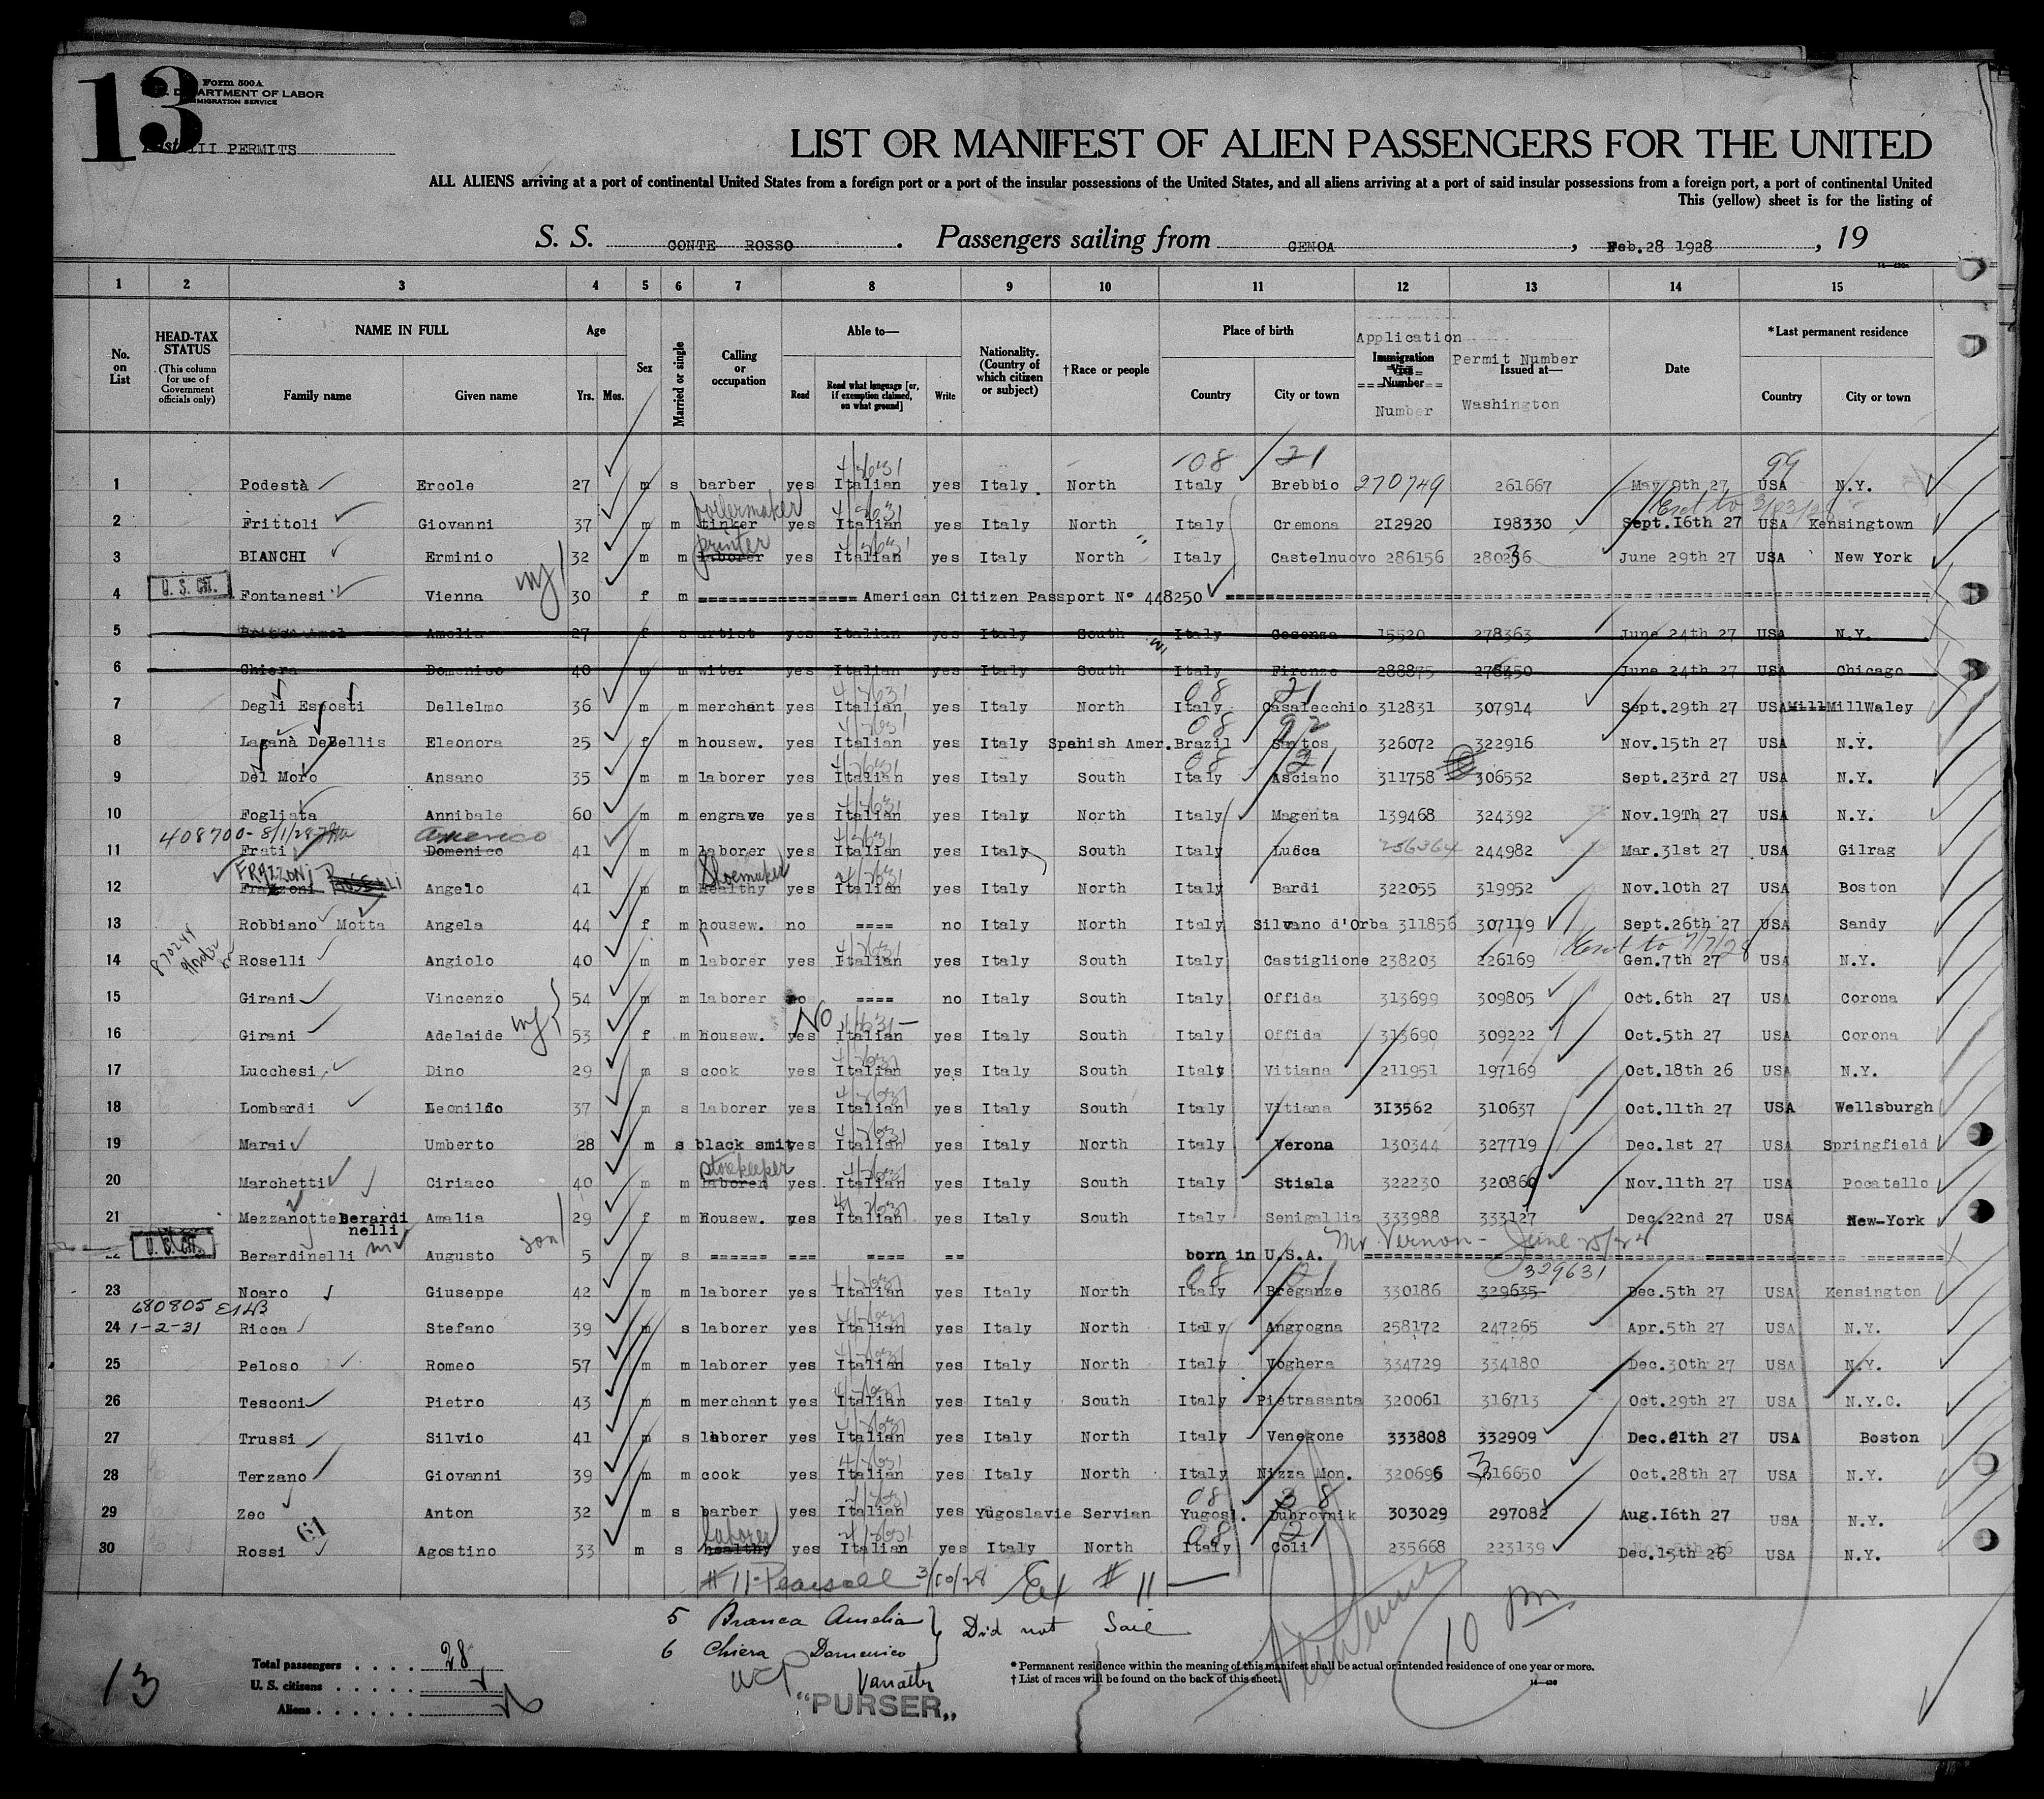 13
Form 500 A
DEPARTMENT OF LABOR
IMMIGRATION SERVICE
III PERMITS
LIST OR MANIFEST OF ALIEN PASSENGERS FOR THE UNITED
ALL ALIENS arriving at a port of continental United States from a foreign port or a port of the insular possessions of the United States, and all aliens arriving at a port of said insular possessions from a foreign port, a port of continental United
This (yellow) sheet is for the listing of
S. S. CONTE ROSSO. Passengers sailing from GENOA, Feb.28 1928, 19
1 2 3 4 5 6 7 8 9 10 11 12 13 14 15
No. on List
HEAD-TAX STATUS (This column for use of Government officials only)
NAME IN FULL Family name Given name
Age Yrs. Mos.
Sex
Married or single
Calling or occupation
Able to— Read Read what language [or, if exemption claimed, on what ground] Write
Nationality. (Country of which citizen or subject)
†Race or people
Place of birth Country City or town
Application Immigration Visa Number Number
Permit Number Issued at— Washington
Date
*Last permanent residence Country City or town
1 Podestà Ercole 27 m s barber yes Italian yes Italy North Italy Brebbio 270749 261667 May 9th 27 USA N.Y.
2 Frittoli Giovanni 37 m m tinker boilermaker yes Italian yes Italy North Italy Cremona 212920 198330 Sept.16th 27 USA Kensingtown
3 BIANCHI Erminio 32 m m laborer printer yes Italian yes Italy North Italy Castelnuovo 286156 280236 June 29th 27 USA New York
U. S. CIT.
4 Fontanesi Vienna 30 f m American Citizen Passport N° 448250
5 Amelia 27 f s artist yes Italian yes Italy South Italy Cosenza 15520 278363 June 24th 27 USA N.Y.
6 Chiera Domenico 40 m m witer yes Italian yes Italy South Italy Firenze 288875 278450 June 24th 27 USA Chicago
7 Degli Esposti Dellelmo 36 m m merchant yes Italian yes Italy North Italy Casalecchio 312831 307914 Sept.29th 27 USA Mill MillWaley
8 Laganà DeBellis Eleonora 25 f m housew. yes Italian yes Italy Spanish Amer. Brazil Santos 326072 322916 Nov.15th 27 USA N.Y.
9 Del Moro Ansano 35 m m laborer yes Italian yes Italy South Italy Asciano 311758 306552 Sept.23rd 27 USA N.Y.
10 Fogliata Annibale 60 m m engrave yes Italian yes Italy North Italy Magenta 139468 324392 Nov.19Th 27 USA N.Y.
408700- 8/1/28 Americo
11 Frati Domenico 41 m m laborer yes Italian yes Italy South Italy Lucca 256364 244982 Mar.31st 27 USA Gilrag
FRAZZONI
12 Frazzoni Angelo 41 m m healthy Shoemaker yes Italian yes Italy North Italy Bardi 322055 319952 Nov.10th 27 USA Boston
13 Robbiano Motta Angela 44 f m housew. no ==== no Italy North Italy Silvano d'Orba 311856 307119 Sept.26th 27 USA Sandy
14 Roselli Angiolo 40 m m laborer yes Italian yes Italy South Italy Castiglione 238203 226169 Gen.7th 27 USA N.Y.
15 Girani Vincenzo 54 m m laborer no ==== no Italy South Italy Offida 313699 309805 Oct.6th 27 USA Corona
16 Girani Adelaide 53 f m housew. yes No Italian yes Italy South Italy Offida 313690 309222 Oct.5th 27 USA Corona
17 Lucchesi Dino 29 m s cook yes Italian yes Italy South Italy Vitiana 211951 197169 Oct.18th 26 USA N.Y.
18 Lombardi Leonildo 37 m s laborer yes Italian yes Italy South Italy Vitiana 313562 310637 Oct.11th 27 USA Wellsburgh
19 Marai Umberto 28 m s black smit yes Italian yes Italy North Italy Verona 130344 327719 Dec.1st 27 USA Springfield
20 Marchetti Ciriaco 40 m m laborer storekeeper yes Italian yes Italy South Italy Stiala 322230 320860 Nov.11th 27 USA Pocatello
21 Mezzanotte Berardi nelli Amalia 29 f m Housew. yes Italian yes Italy South Italy Senigallia 333988 333127 Dec.22nd 27 USA New-York
U. S. CIT.
22 Berardinelli Augusto son 5 m s ====== === ==== == born in U.S.A. Mt Vernon - June
23 Noaro Giuseppe 42 m m laborer yes Italian yes Italy North Italy Breganze 330186 329635 329631 Dec.5th 27 USA Kensington
680805
1-2-31
24 Ricca Stefano 39 m s laborer yes Italian yes Italy North Italy Angrogna 258172 247265 Apr.5th 27 USA N.Y.
25 Peloso Romeo 57 m m laborer yes Italian yes Italy North Italy Voghera 334729 334180 Dec.30th 27 USA N.Y.
26 Tesconi Pietro 43 m m merchant yes Italian yes Italy South Italy Pietrasanta 320061 316713 Oct.29th 27 USA N.Y.C.
27 Trussi Silvio 41 m s laborer yes Italian yes Italy North Italy Venegone 333808 332909 Dec.21th 27 USA Boston
28 Terzano Giovanni 39 m m cook yes Italian yes Italy North Italy Nizza Mon. 320696 316650 Oct.28th 27 USA N.Y.
29 Zec Anton 32 m s barber yes Italian yes Yugoslavie Servian Yugosl. Dubrovnik 303029 297082 Aug.16th 27 USA N.Y.
30 Rossi Agostino 33 m s healthy laborer yes Italian yes Italy North Italy Coli 235668 223139 Dec.15th 26 USA N.Y.
# 11- Pearsall 3/10/28 Ex # 11
5 Branca Amelia
6 Chiera Domenico
Did not Sail
10 PM
13
Total passengers . . . . 28
U. S. citizens . . . . .
Aliens . . . . . .
"PURSER„
* Permanent residence within the meaning of this manifest shall be actual or intended residence of one year or more.
† List of races will be found on the back of this sheet.